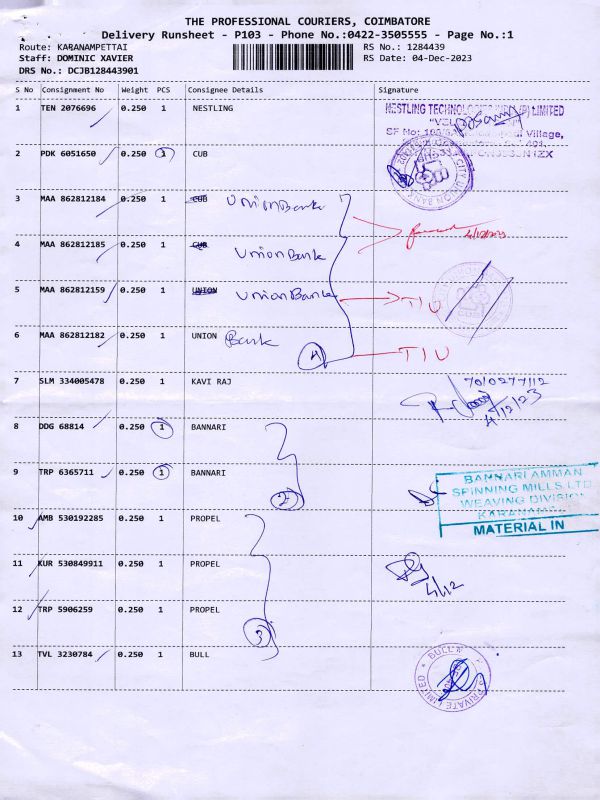 THE PROFESSIONAL COURIERS, COIMBATORE
Delivery Runsheet - P103 - Phone No.:0422-3505555 - Page No.:1
Route: KARANAMPETTAI RS No.: 1284439
Staff: DOMINIC XAVIER RS Date: 04-Dec-2023
DRS No.: DCJB128443901
S No Consignment No Weight PCS Consignee Details Signature
1 TEN 2076696 0.250 1 NESTLING
NESTLING TECHNOLOGIES LIMITED
Village,
2 PDK 6051650 0.250 1 CUB
3 MAA 862812184 0.250 1 CUB Union Bank
4/12/2023
4 MAA 862812185 0.250 1 CUB Union Bank
5 MAA 862812159 0.250 1 UNION Union Bank TIU
6 MAA 862812182 0.250 1 UNION Bank
4 TIU
7 SLM 334005478 0.250 1 KAVI RAJ 7010277112
4/12/23
8 DDG 68814 0.250 1 BANNARI
9 TRP 6365711 0.250 1 BANNARI
2
BANNARI AMMAN
SPINNING MILLS LTD
WEAVING DIVISION
MATERIAL IN
10 AMB 530192285 0.250 1 PROPEL
11 KUR 530849911 0.250 1 PROPEL
4/12
12 TRP 5906259 0.250 1 PROPEL
3
13 TVL 3230784 0.250 1 BULL
BULL PRIVATE LIMITED